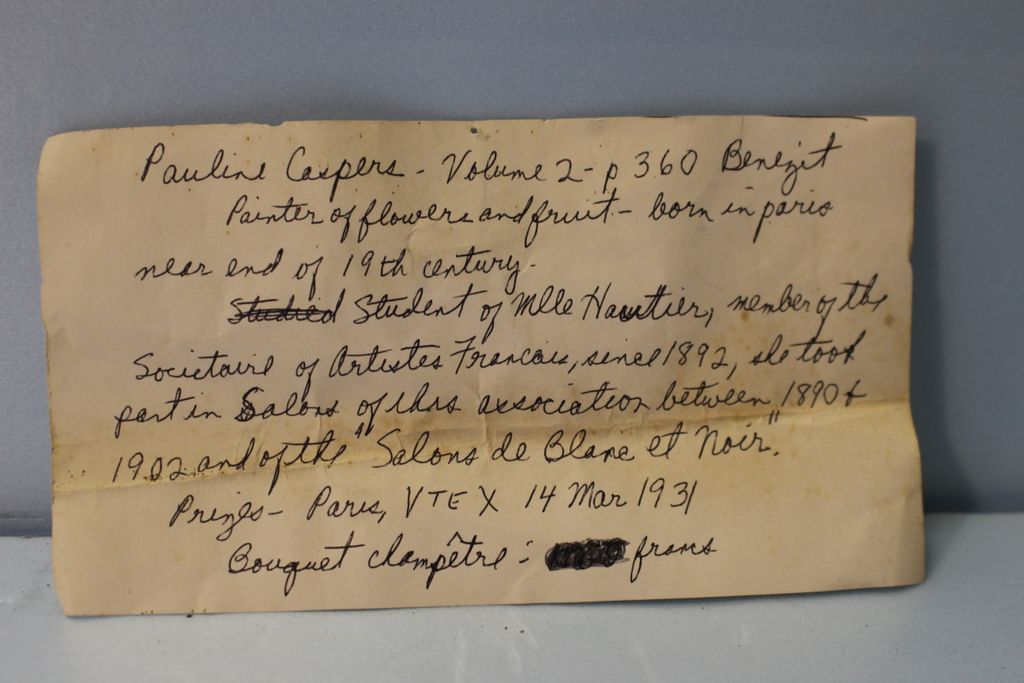 Pauline Caspers - Volume 2 - p 360 Benezit
Painter of flowers and fruit - born in paris
near end of 19th century.
Studied Student of Mlle Hauttier, member of the
Societaire of Artistes Francais, since 1892, she took
part in Salons of this association between 1890 &
1902 and of the "Salons de Blanc et Noir".
Prizes - Paris, VTE X 14 Mar 1931
Bouquet champêtre : francs